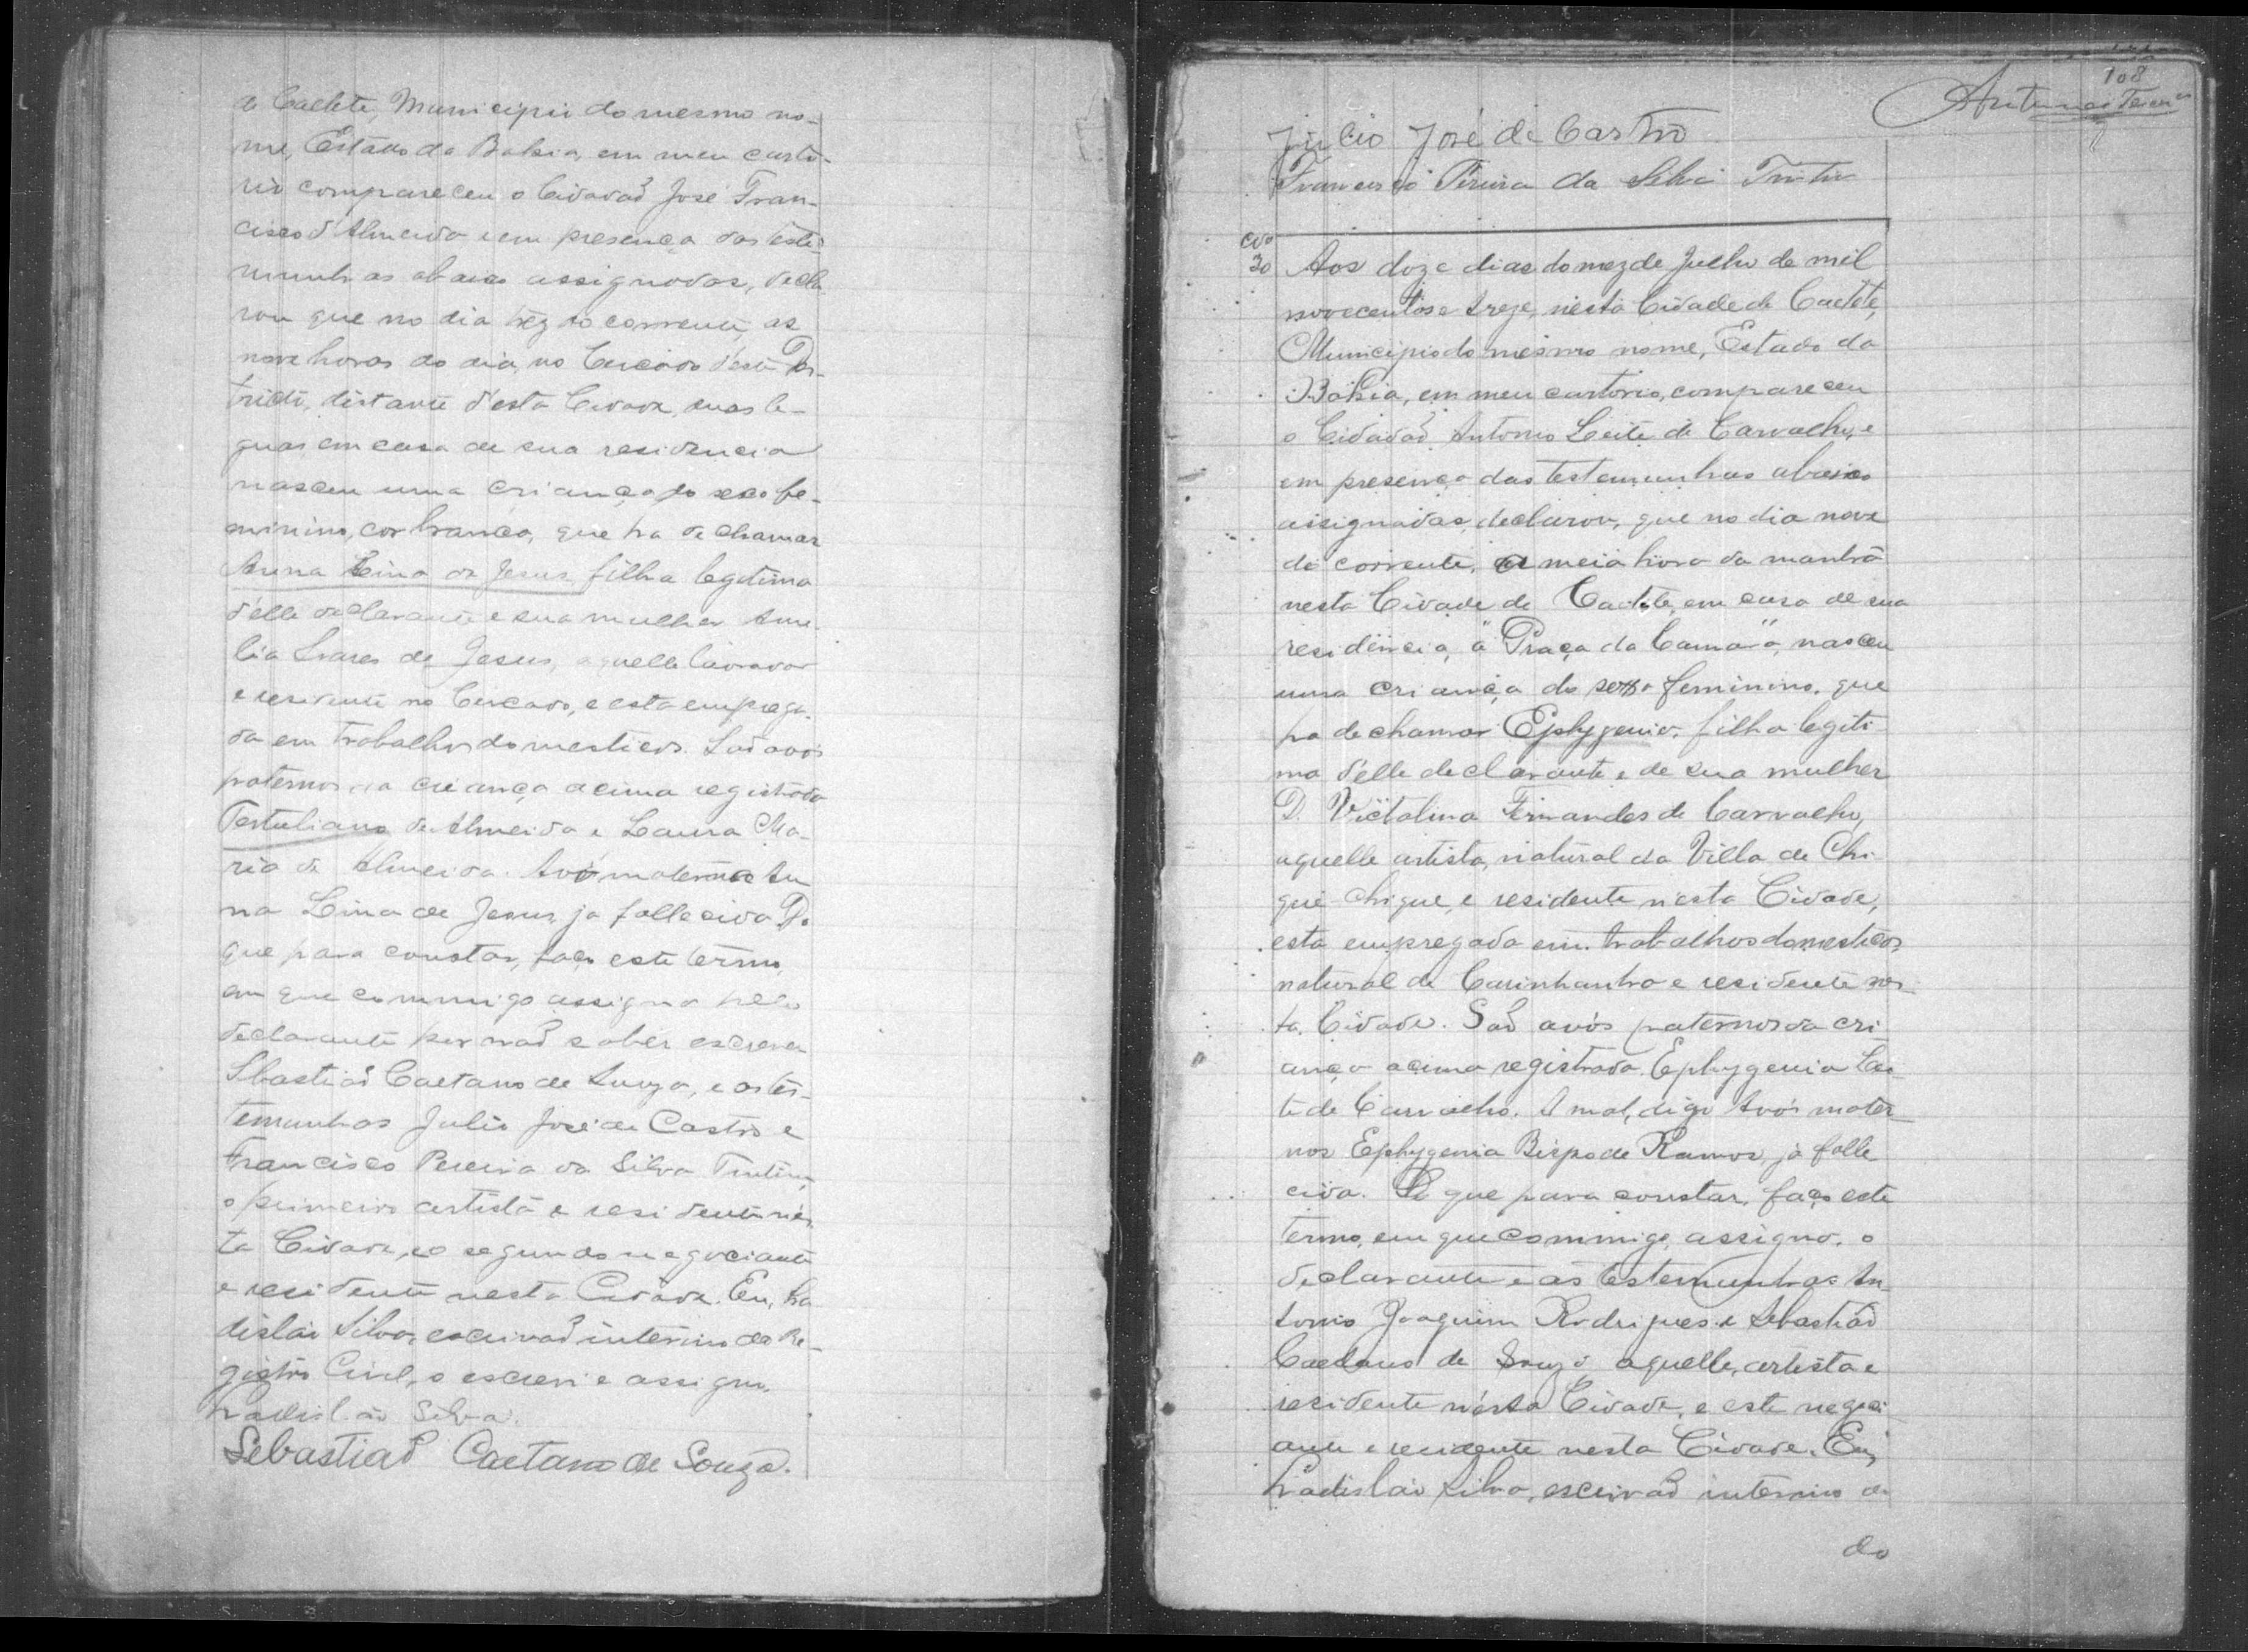 de Caeteté, Municipio do mesmo no-
me, Estado da Bahia, em meu carto-
rio compareceu o Cidadaõ José Fran-
cisco d'Almeida e em presença das teste-
munhas abaixo assignadas, decla
rou que no dia trez do corrente, as
nove horas do dia, no Cercado d'este Dis-
tricto, distante d'esta Cidade, duas le-
guas em casa de sua residencia
nasceu uma criança do sexo fe-
minino, cor branca, que ha de chamar
Anna Lina de Jesus, filha legitima
d'elle declarante e sua mulher Ame-
lia Soares de Jesus, aquelle lavrador
e residente no Cercado, e esta emprega-
da em trabalhos domesticos. Saõ avós
paternos da criança acima registrada
Tertuliano de Almeida e Laura Ma-
ria de Almeida. Avó materna An
na Lina de Jesus, já fallecida. Do
que para constar, faço este termo,
em que commigo assigna pelo
declarante por naõ saber escrever
Sebastiaõ Caetano de Souza, e as tes-
temunhas Julio José de Castro e
Francisco Pereira da Silva
o primeiro artista e residente nes-
ta Cidade, e o segundo negociante
e residente nesta Cidade. Eu, La
disláo Silva, escrivaõ interino do Re-
gistro Civil, o escrevi e assigno.
Ladisláo Silva.
Sebastiaõ Caetano de Souza.
108
Antunes
Júlio José de Castro
Francisco Pereira da Silva
30 Aos doze dias do mez de Julho de mil
novecentos e treze, nesta Cidade de Caeteté,
Municipio do mesmo nome, Estado da
Bahia, em meu cartorio, compareceu
o Cidadaõ Antonio Leite de Carvalho, e
em presença das testemunhas abaixo
assignadas, declarou, que no dia nove
do corrente, a meia hora da manhã
nesta Cidade de Caeteté, em casa de sua
residência, á "Praça da Camara", nasceu
uma criança do sexo feminino, que
ha de chamar Ephygenia, filha legiti-
ma d'elle declarante e de sua mulher
D. Victalina Fernandes de Carvalho,
aquelle artista, natural da Villa de Chi-
que-Chique, e residente n'esta Cidade,
esta empregada em trabalhos domesticos,
natural de Carinhanha e residente nes-
ta Cidade. Saõ avós paternos da cri
ança acima registrada Ephygenia Lei-
te de Carvalho. A mat, digo Avós mater-
nos Ephygenia Bispo de Ramos, já falle
cida. Do que para constar, faço este
termo, em que commigo, assigna, o
declarante e as testemunhas An-
tonio Joaquim Rodrigues e Sebastiaõ
Caetano de Souza, aquelle, artista e
residente nesta Cidade, e este negoci
ante e residente nesta Cidade. Eu,
Ladisláo Silva, escrivaõ interino do
do